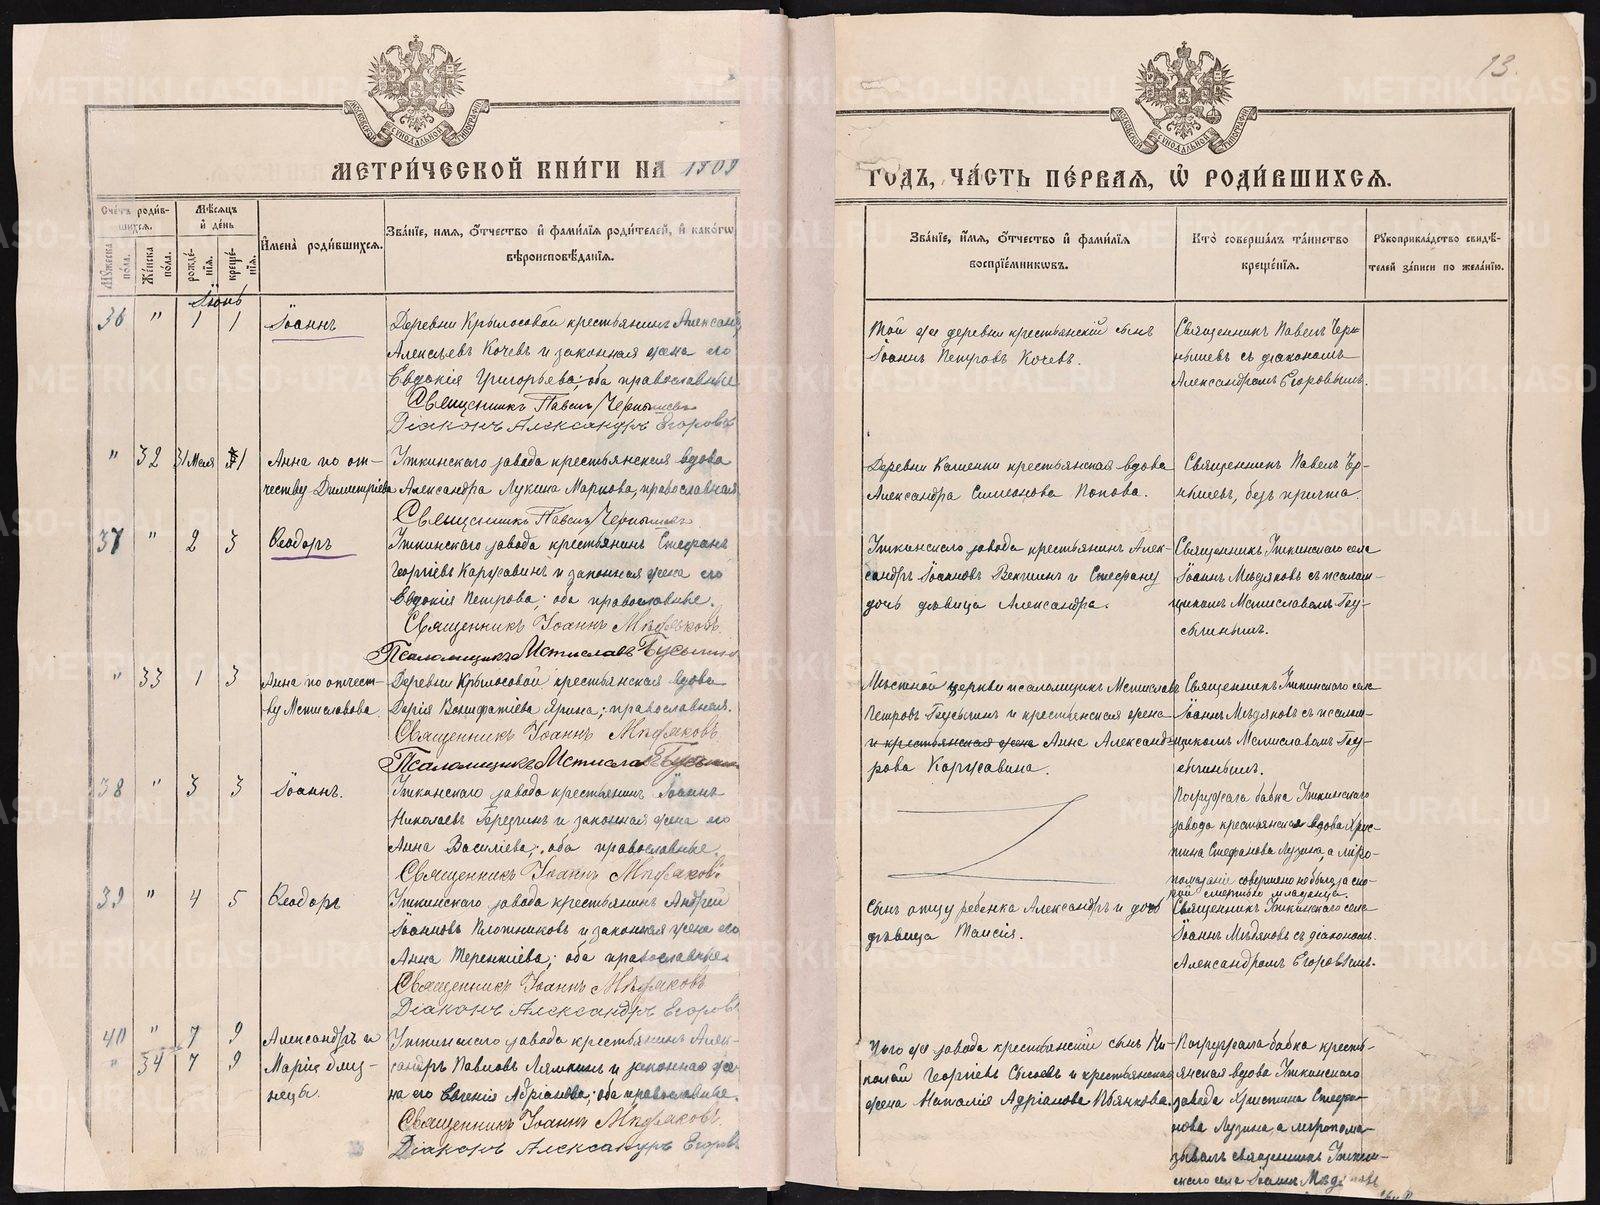 13.
МЕТРИ́ЧЕСКОЙ КНИ́ГИ НА 1909
ГОДЪ, ЧА́СТЬ ПЕ́РВАЯ, Ѡ҆ РОДИ́ВШИХСЯ.
Сче́тъ роди́в-
шихся.
Мѣ́сяцъ
и҆ де́нь
Мꙋ́жеска
по́ла.
Же́нска
по́ла.
рожде́-
нїя.
креще́-
нїя.
И҆мена̀ роди́вшихся.
Зва́нїе, и҆мя, Ѻ҆́тчество и҆ фами́лїя роди́телей, и҆ како́гѡ
вѣроисповѣ́данїя.
Зва́нїе, и҆́мя, Ѻ҆́тчество и҆ фами́лїя
воспрїе́мникѡвъ.
Кто̀ соверша́лъ та́инство
креще́нїя.
Рꙋкоприкла́дство свидѣ́-
телей за́писи по жела́нїю.
Іюнь
36 " 1 1 Іоаннъ
Деревни Крылосовой крестьянинъ Александръ
Алексѣевъ Кочевъ и законная жена его
Евдокія Григорьева; оба православные
Священникъ Павелъ Чернышевъ
Діаконъ Александръ Егоровъ
Той же деревни крестьянскій сынъ
Іоаннъ Петровъ Кочевъ.
Священникъ Павелъ Чер-
нышевъ съ діакономъ
Александромъ Егоровымъ.
" 32 31 Мая 1 Анна по от-
честву Димитріева
Уткинскаго завода крестьянская вдова
Александра Лукина Маркова, православная
Священникъ Павелъ Чернышевъ
Деревни Каменки крестьянская вдова
Александра Симеонова Попова.
Священникъ Павелъ Чер-
нышевъ, безъ причта.
37 " 2 3 Ѳеодоръ
Уткинскаго завода крестьянинъ Стефанъ
Георгіевъ Каружавинъ и законная жена его
Евдокія Петрова; оба православные.
Священникъ Іоаннъ Мѣдяковъ.
Псаломщикъ Мстиславъ
Уткинскаго завода крестьянинъ Алек-
сандръ Іоанновъ и Стефану
дочь дѣвица Александра.
Священникъ Уткинскаго села
Іоаннъ Мѣдяковъ съ псалом-
щикомъ Мстиславомъ
" 33 1 3 Анна по отчест-
ву Мстиславова
Деревни Крылосовой крестьянская вдова
Дарія Вонифатіева Ярина; православная.
Священникъ Іоаннъ Мѣдяковъ
Псаломщикъ Мстиславъ
Мѣстной церкви псаломщикъ Мстиславъ
Петровъ и крестьянская жена
и крестьянская жена Анна Александ-
рова Каружавина.
Священникъ Уткинскаго села
Іоаннъ Мѣдяковъ съ псалом-
щикомъ Мстиславомъ
38 " 3 3 Іоаннъ.
Уткинскаго завода крестьянинъ Іоаннъ
Николаевъ и законная жена его
Анна Василіева; оба православные.
Священникъ Іоаннъ Мѣдяковъ
Погружала бабка Уткинскаго
завода крестьянская вдова Хрис-
тина Стефанова Лузина, а мѵро-
помазаніе совершено не было за ско-
рой смертью младенца.
39 " 4 5 Ѳеодоръ
Уткинскаго завода крестьянинъ Андрей
Іоанновъ Плотниковъ и законная жена его
Анна Терентіева; оба православные
Священникъ Іоаннъ Мѣдяковъ
Діаконъ Александръ Егоровъ
Сынъ отцу ребенка Александръ и дочь
дѣвица Таисія.
Священникъ Уткинскаго села
Іоаннъ Мѣдяковъ съ діакономъ
Александромъ Егоровымъ.
40 " 7 9 Александръ и
" 34 7 9 Марія близ-
нецы.
Уткинскаго завода крестьянинъ Алек-
сандръ Павловъ Лямкинъ и законная же-
на его Евгенія Адріанова; оба православные.
Священникъ Іоаннъ Мѣдяковъ.
Діаконъ Александръ Егоровъ
Того же завода крестьянскій сынъ Ни-
колай Георгіевъ Сысоевъ и крестьянская
жена Наталія Адріанова Пьянкова.
Погружала бабка кресть-
янская вдова Уткинскаго
завода Христина Стефа-
нова Лузина, а мѵропома-
зывалъ священникъ Уткин-
скаго села Іоаннъ Мѣдяковъ